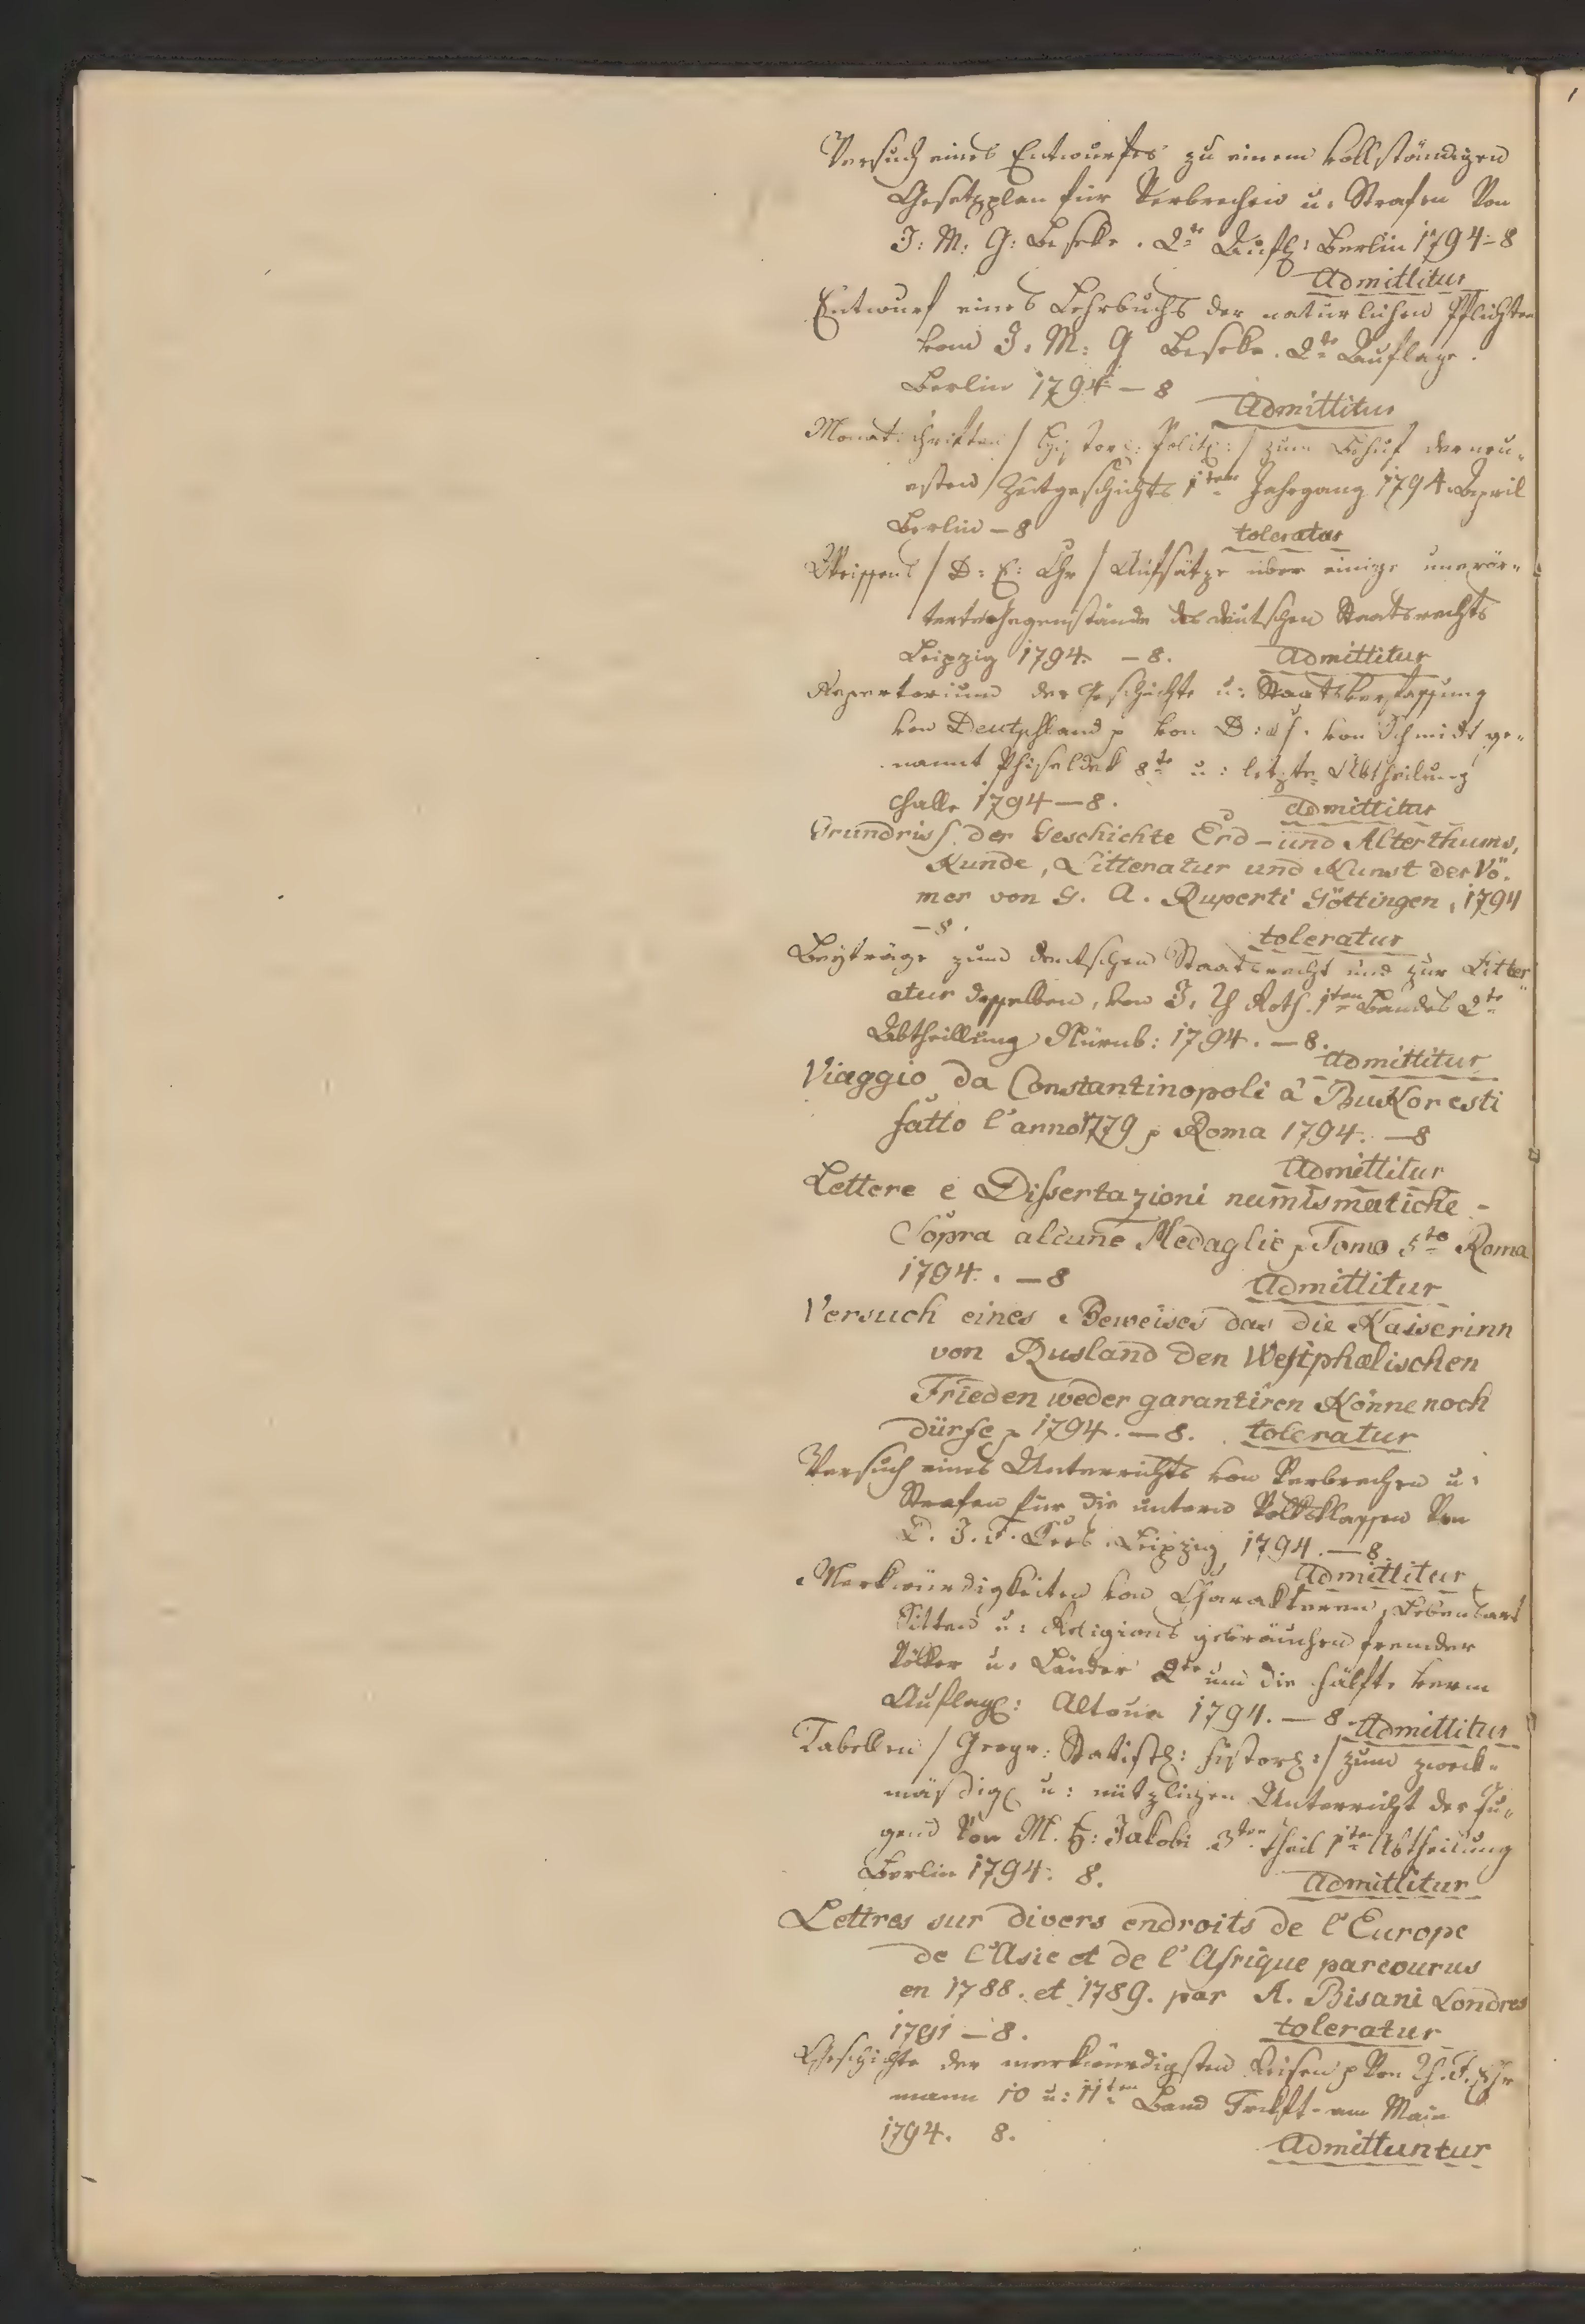 Versuch eines Entwurfes zu einem vollständigen
Gesetzplan für Verbrechen u. Strafen Von
J: M: G: Beseke. 2te Aufl: Berlin 1794–8
Admittitur
Entwurf eines Lehrbuchs der natürlichen Pflichten
von J. M: G Beseke. 2te Auflage.
Berlin 1794 – 8
Admittitur
Monatschriften / Histor: Polit: / zum Behuf der neu-
esten Zeitgeschichte 1ter Jahrgang 1794. April
Berlin – 8 toleratur
/ D: E: Chr / Aufsätze über einige unerör-
terte Gegenstände des deutschen Staatsrechts
Leipzig 1794. – 8. Admittitur
Repertorium der Geschichte u: Staatsverfassung
von Deutschland p von von Schmidt ge-
nannt Phiseldek 8te u: letzte Abtheilung
Halle 1794 – 8. Admittitur
Grundriss der Geschichte Erd – und Alterthums,
Kunde, Litteratur und Kunst der Rö-
mer von G. A. Ruperti Göttingen, 1794
– 8. toleratur
Beyträge zum deutschen Staatsrecht und zur Litter
atur desselben, von J. Roth. 1ten Bandes 2te
Abtheillung Nürnb: 1794. – 8.
Admittitur
Viaggio da Constantinopoli â Bukoresti
fatto l'anno 1779 p Roma 1794. – 8
Admittitur
Lettere e Dissertazioni numismatiche –
Sopra alcune Medaglie p Tomo 5to Roma
1794. – 8 Admittitur
Versuch eines Beweises das die Kaiserinn
von Rusland den Westphælischen
Frieden weder garantiren Könne noch
dürfe p 1794. – 8. toleratur
Versuch eines Unterrichts von Verbrechen u:
Strafen für die untern Volksklassen Von
D. J. F. Kees. Leipzig 1794. – 8.
Admittitur
Merkwürdigkeiten von Charakteren, Lebensart
Sitten u: Religions gebräuchen fremder
Völker u. Länder 2te um die Hälfte verm
Auflage: Altona 1794. – 8. Admittitur
Tabellen / Geogr: Statist: histor: / zum zweck-
mäsdig u: nützlichen Unterricht der Ju-
gend Von M. F: Jakobi 3ten Theil 1te Abtheilung
Berlin 1794. 8. Admittitur
Lettres sur divers endroits de l'Europe
de l'Asie et de l'Afrique parcourus
en 1788. et 1789. par A. Bisani Londres
1791 – 8. toleratur
Geschichte der merkwürdigsten Reisen p Von Th. F. Ehr
mann 10 u: 11ten Band Frkft. am Main
1794. 8. Admittuntur